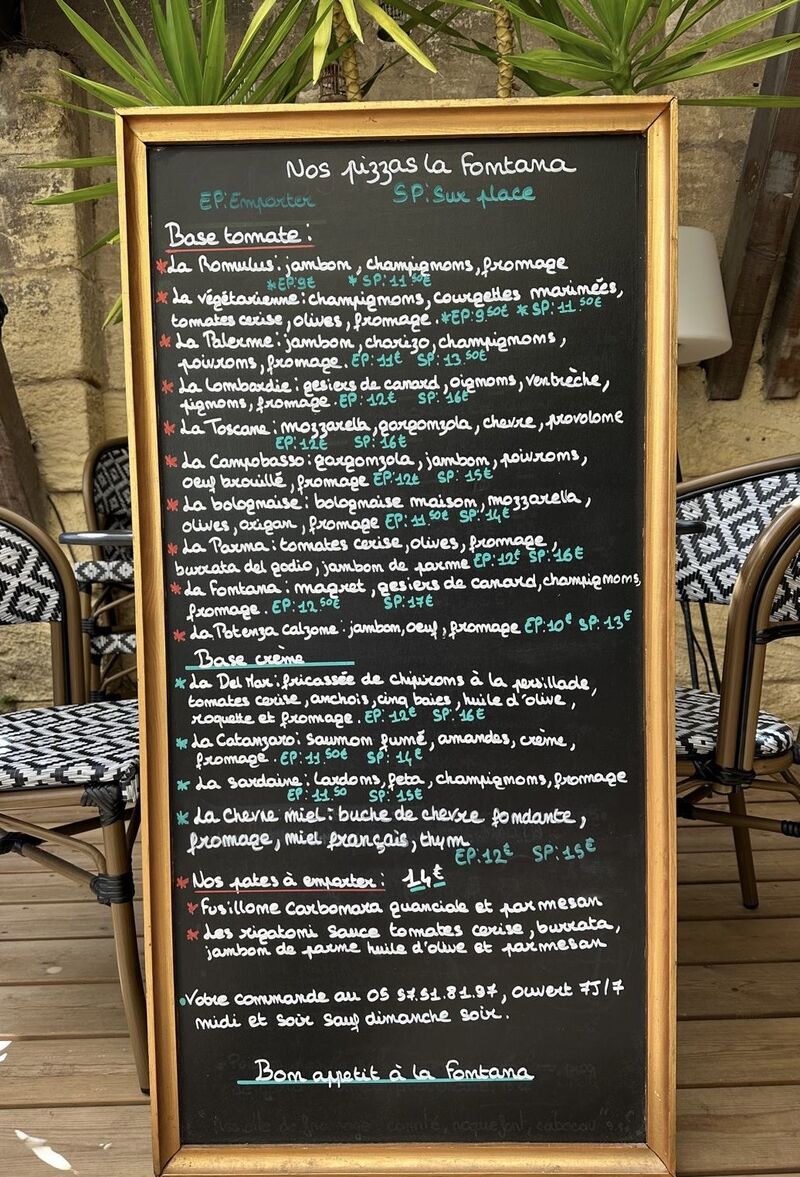 Nos pizzas la Fontana
EP: Emporter SP: Sur place
Base tomate:
*La Romulus: jambon, champignons, fromage
*EP:9€ *SP:11.50€
*La végétarienne: champignons, courgettes marinées,
tomates cerise, olives, fromage. *EP:9.50€ *SP:11.50€
*La Palerme: jambon, charizo, champignons,
poivrons, fromage. EP:11€ SP:13.50€
*La Lombardie: gesiers de canard, oignons, ventrèche,
pignons, fromage. EP:12€ SP:16€
*La Toscane: mozzarella, gorgonzola, chevre, provolone
EP:12€ SP:16€
*La Campobasso: gorgonzola, jambon, poivrons,
oeuf brouillé, fromage EP:12€ SP:15€
*La bolognaise: bolognaise maison, mozzarella,
olives, origan, fromage EP:11.50€ SP:14€
*La Parma: tomates cerise, olives, fromage,
burrata del godio, jambon de parme EP:12€ SP:16€
*La Fontana: magret, gesiers de canard, champignons,
fromage. EP:12.50€ SP:17€
*La Potenza Calzone: jambon, oeuf, fromage EP:10€ SP:13€
Base crème
*La Del Mar: fricassée de chipirons à la persillade,
tomates cerise, anchois, cinq baies, huile d'olive,
roquette et fromage. EP:12€ SP:16€
*La Catanzaro: saumon fumé, amandes, crème,
fromage. EP:11.50€ SP:14€
*La sardaine: lardons, feta, champignons, fromage
EP:11.50 SP:15€
*La Chevre miel: buche de chevre fondante,
fromage, miel français, thym
EP:12€ SP:15€
*Nos pates à emporter: 14€
*Fusillone Carbonara guanciale et parmesan
*Les rigatoni sauce tomates cerise, burrata,
jambon de parme huile d'olive et parmesan
•Votre commande au 05 57.51.81.97, ouvert 7J/7
midi et soir sauf dimanche soir.
Bon appetit à la Fontana